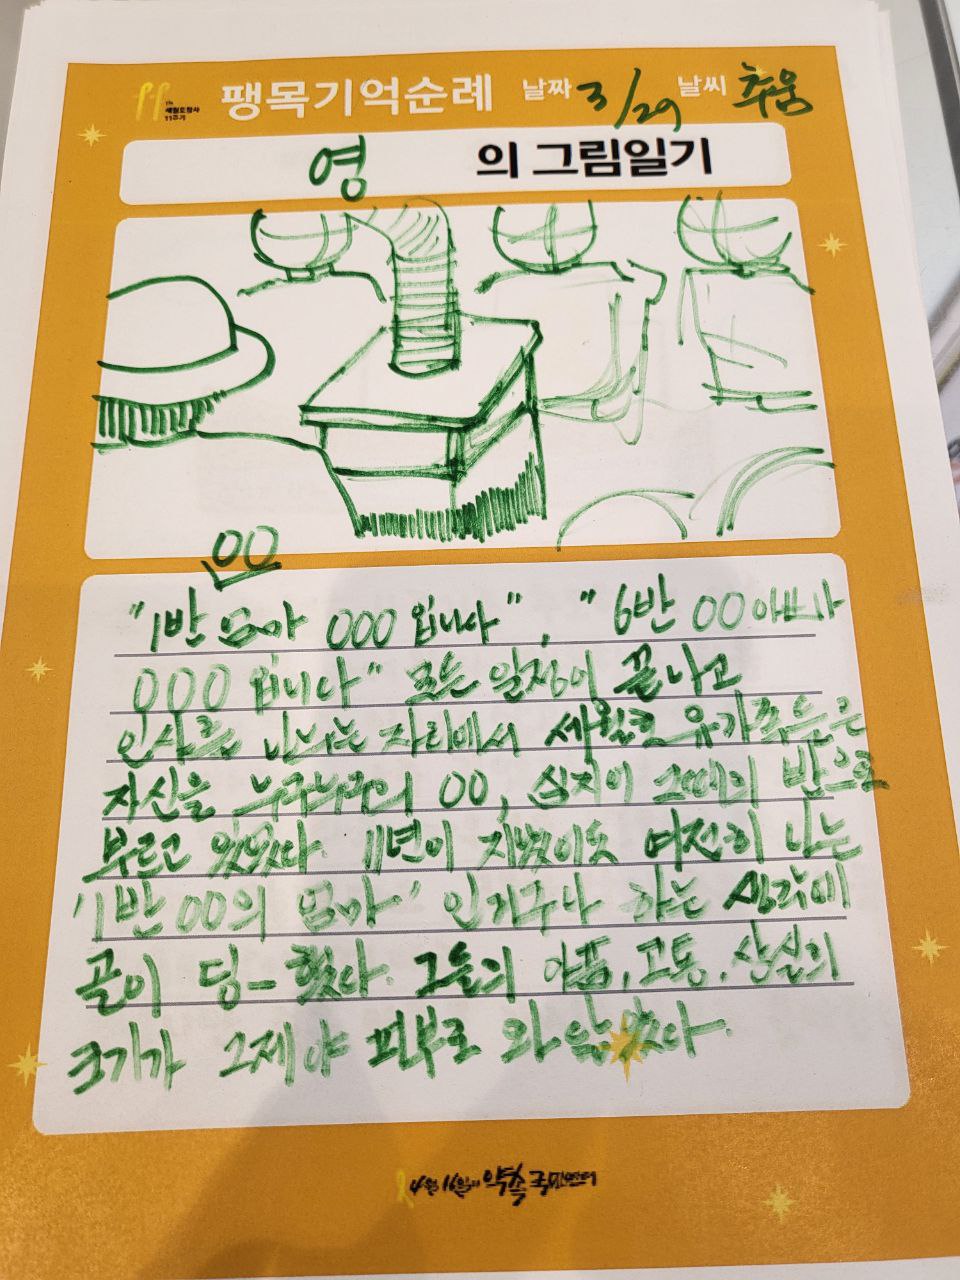 세월호참사
11주기
팽목기억순례 날짜 3/29 날씨 추움
영 의 그림일기
OO
"1반 엄마 OOO입니다", "6반 OO아빠
OOO입니다" 모든 일정이 끝나고
인사를 나누는 자리에서 세월호 유가족들은
자신을 누구누구의 OO, 심지어 그때의 반으로
부르고 있었다. 11년이 지났어도 여전히 나는
'1반 OO의 엄마' 인거구나 하는 생각에
골이 딩- 했다. 그들의 아픔, 고통, 상실의
크기가 그제야 피부로 와 닿았다.
4월16일의약속국민연대